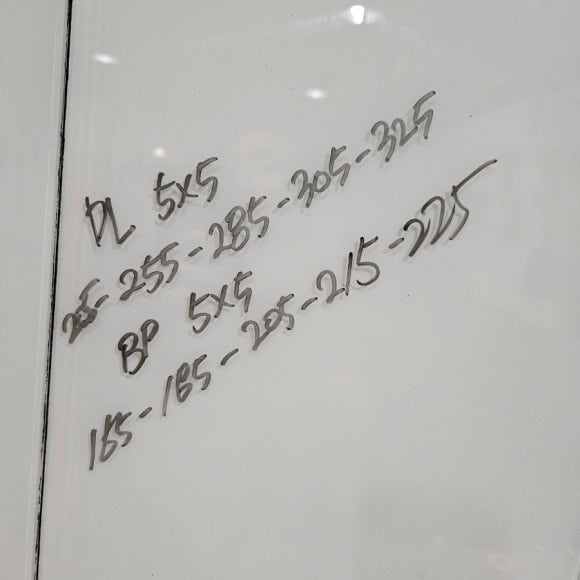 DL 5x5
255-285-305-325
BP 5x5
185-205-215-225